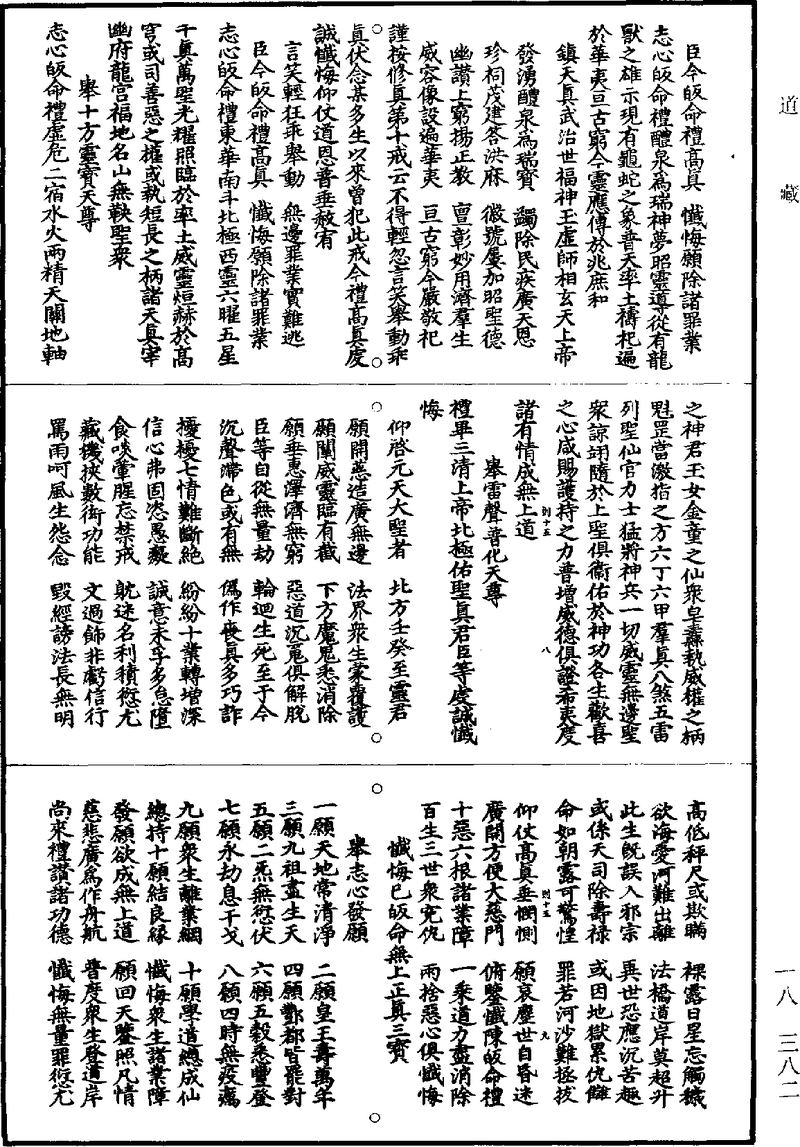 道藏
臣今皈命禮高真　懺悔願除諸罪業
志心皈命禮醴泉為瑞神夢昭靈導從有龍
獸之雄示現有龜蛇之象普天率土禱祀遍
於華夷亘古窮今靈應傅於兆庶和
鎮天真武治世福神玉虛師相玄天上帝
發湧醴泉為瑞寶　蠲除民疾廣天恩
珍祠茂建荅洪庥　徽號屢加昭聖德
幽讚上窮揚正教　亶彰妙用濟羣生
威容像設遍華夷　亘古窮今嚴敬祀
謹按修真第十戒云不得輕忽言笑舉動乖
真伏念某多生以來曾犯此戒今禮高真虔
誠懺悔仰仗道恩普垂赦宥
言笑輕狂乖舉動　無邊罪業實難逃
臣今皈命禮高真　懺悔願除諸罪業
志心皈命禮東華南斗北極西靈六曜五星
千真萬聖光耀照臨於率土威靈烜赫於高
穹或司善惡之權或執短長之柄諸天真宰
幽府龍宮福地名山無鞅聖衆
舉十方靈寶天尊
志心皈命禮虛危二宿水火兩精天關地軸
之神君玉女金童之仙衆皁纛執威權之柄
魁罡當激指之方六丁六甲羣真八煞五雷
列聖仙官力士猛將神兵一切威靈無邊聖
衆諒翊隨於上聖俱衞佑於神功各生歡喜
之心咸賜護持之力普增威德俱證希夷度
諸有情成無上道
舉雷聲普化天尊
禮畢三清上帝北極佑聖真君臣等虔誠懺
悔
仰啓元天大聖者　北方壬癸至靈君
願開慈造廣無邊　法界衆生蒙覆護
願闡威靈臨有截　下方魔鬼悉消除
願垂惠澤濟無窮　惡道沉冤俱解脫
臣等自從無量劫　輪迴生死至于今
沉聲滯色或有無　僞作喪真多巧詐
擾擾七情難斷絶　紛紛十業轉增深
信心弗固恣愚癡　誠意未孚多怠墮
食啖葷腥忘禁戒　躭迷名利積愆尤
藏機挾數衒功能　文過飾非虧信行
罵雨呵風生怨念　毀經謗法長無明
高低秤尺或欺瞞　裸露日星忘觸穢
欲海愛河難出離　法橋道岸莫超升
此生旣誤入邪宗　再世恐應沉苦趣
或係天司除壽祿　或因地獄累仇讎
命如朝露可驚惶　罪若河沙難拯拔
仰仗高真垂憫惻　願哀塵世自昏迷
廣開方便大慈門　俯鑒懺陳皈命禮
十惡六根諸業障　一乘道力盡消除
百生三世衆寃仇　兩捨惡心俱懺悔
懺悔已皈命無上正真三寶
舉志心發願
一願天地常清淨　二願皇王壽萬年
三願九祖盡生天　四願酆都皆罷對
五願二炁無愆伏　六願五穀悉豐登
七願永劫息干戈　八願四時無疫癘
九願衆生離業網　十願學道總成仙
總持十願結良緣　懺悔衆生諸業障
發願欲成無上道　願回天鑒照凡情
慈悲廣爲作舟航　普度衆生登道岸
尚來禮讚諸功德　懺悔無量罪愆尤
一八　三八二